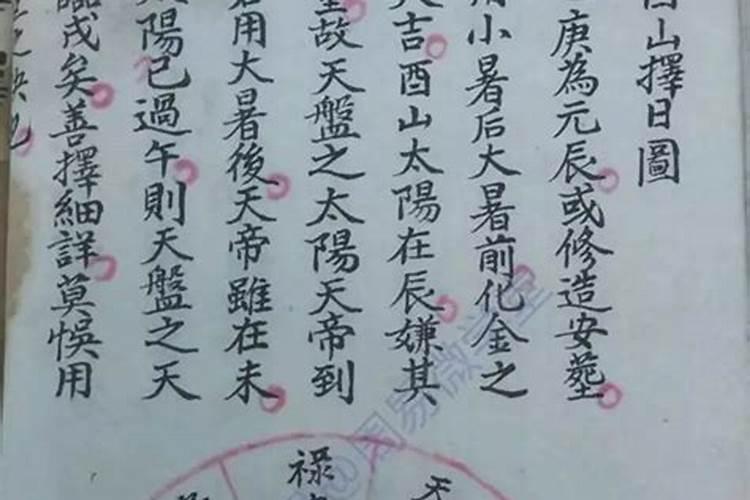 酉山擇日圖
庚為元辰或修造安葬
用小暑后大暑前化金之
大吉酉山太陽在辰嫌其
故天盤之太陽天帝到
用大暑後天帝雖在未
太陽已過午則天盤之天
臨戌矣善擇細詳莫悞用
之
祿
天
@周易微